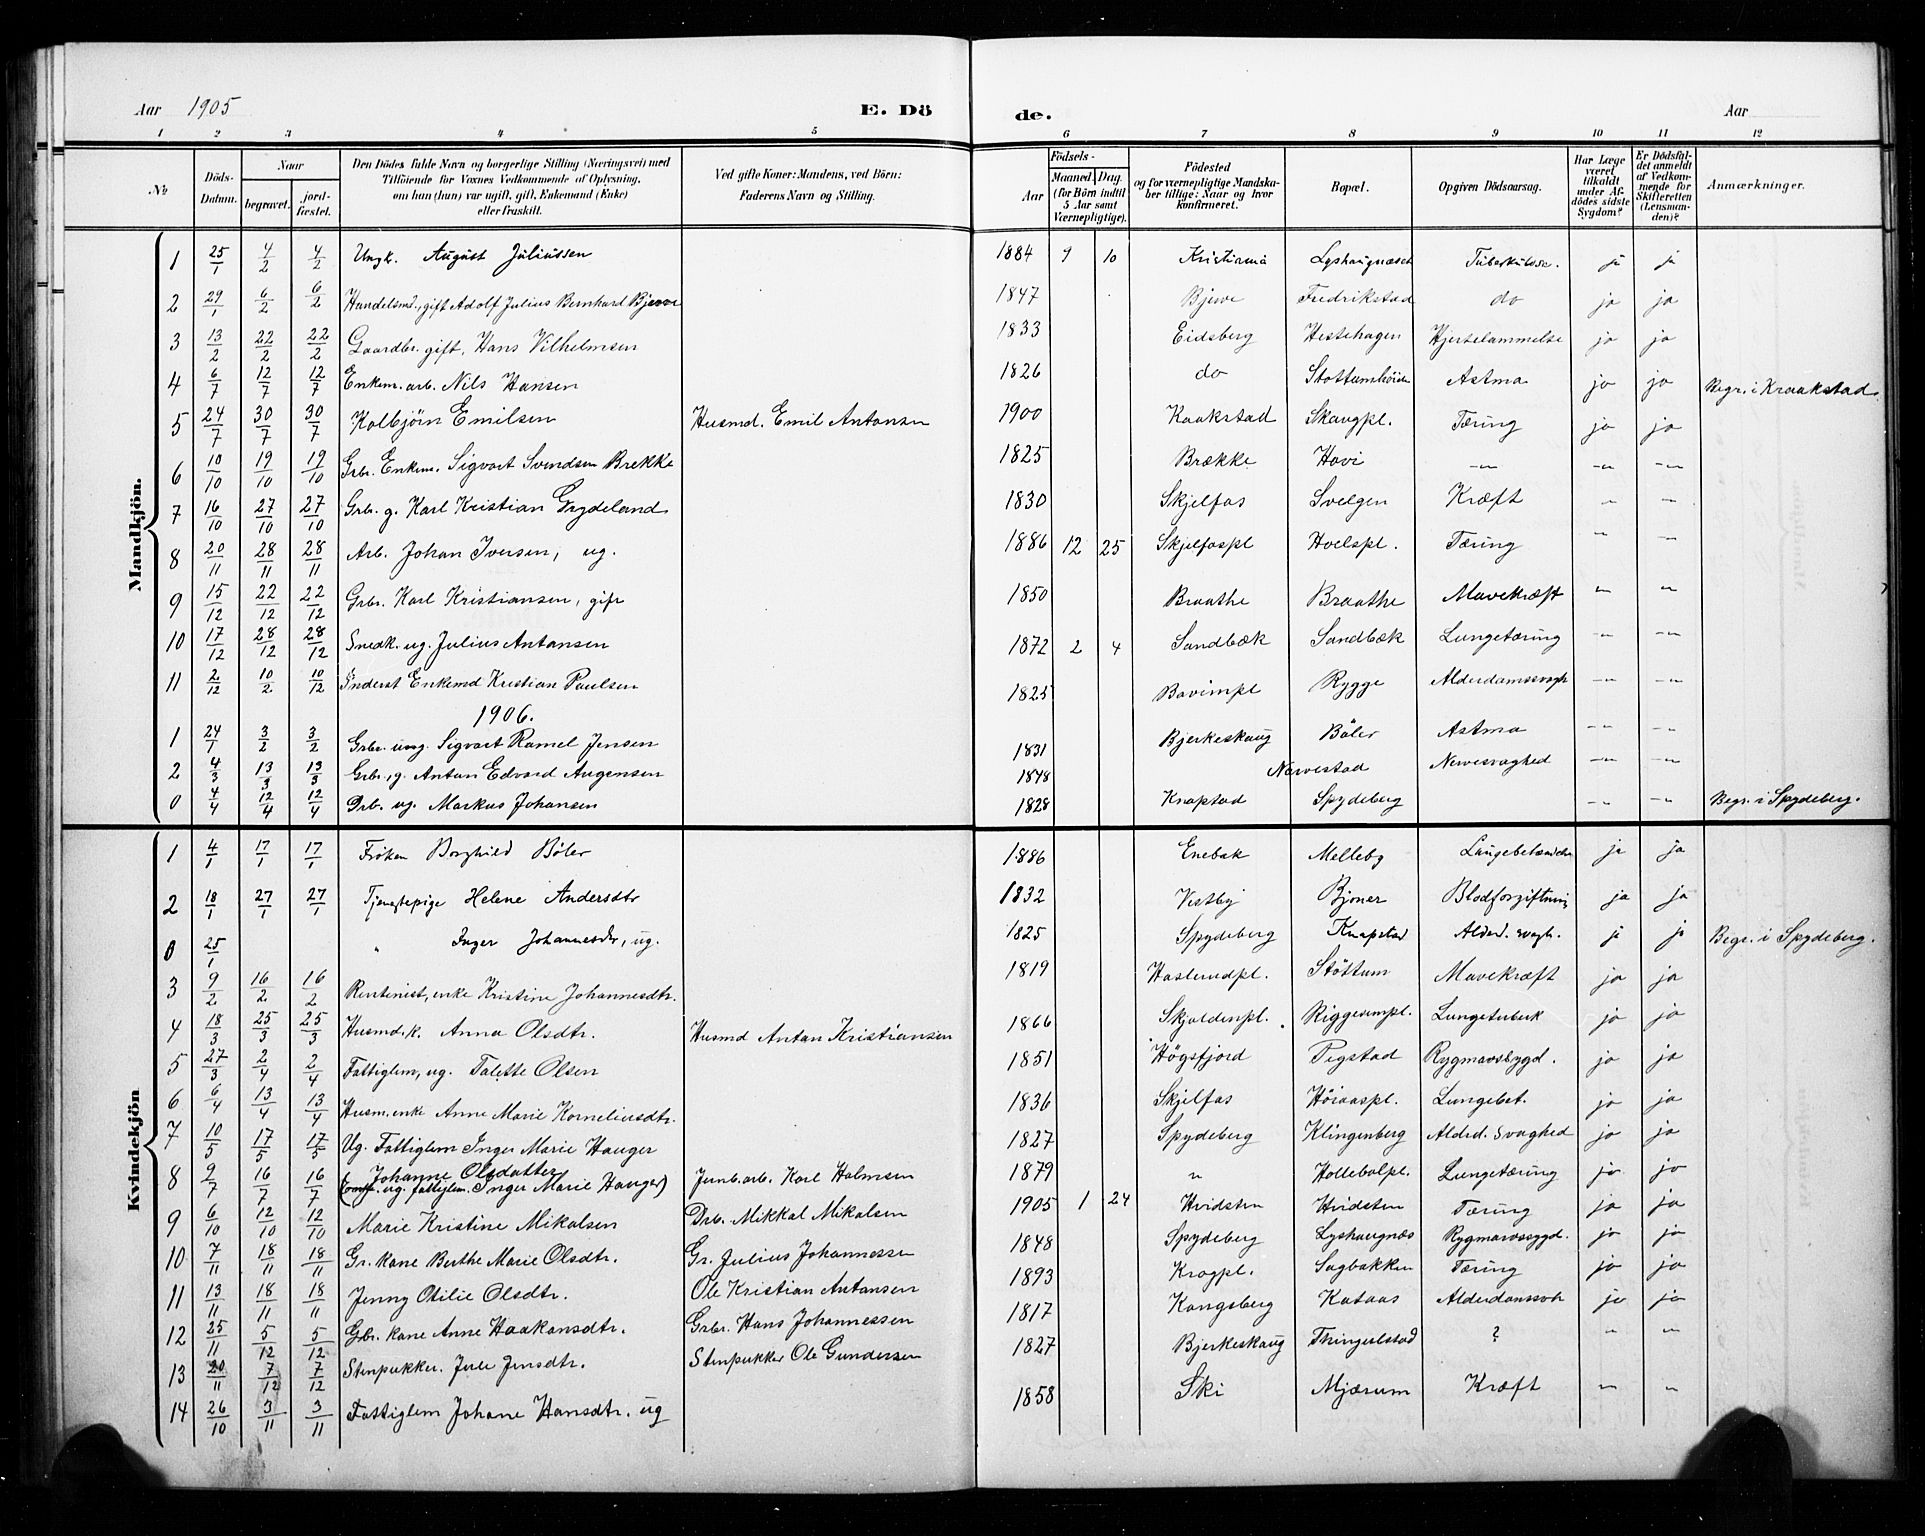 Aar 1905 E. Dö de. Aar
1 2 3 4 5 6 7 8 9 10 11 12
No Döds-Datum. Naar begravet. jordfæstet. Den Dödes fulde Navn og borgerlige Stilling (Næringsvei) med Tilföiende for Voxnes Vedkommende af Oplysning, om han (hun) var ugift, gift, Enkemand (Enke) eller fraskilt. Ved gifte Koner: Mandens, ved Börn: Faderens Navn og Stilling. Födsels- Aar Maaned. Dag. (for Börn indtil 5 Aar samt Værnepligtige). Födested og for værnepligtige Mandskaber tillige: Naar og hvor konfirmeret. Bopæl. Opgiven Dödsaarsag. Har Læge været tilkaldt under Afdödes sidste Sygdom? Er Dödsfaldet anmeldt af Vedkommende for Skifteretten (Lensmanden)? Anmærkninger.
Mandkjön.
1 25/1 4/2 4/2 Ungk. August Juliussen 1884 9 10 Kristiania Tuberkulose. ja ja
2 29/1 6/2 6/2 Handelsmd., gift Adolf Julius Bernhard Bjerve 1847 Bjerve Fredrikstad do ja ja
3 13/2 22/2 22/2 Gaardbr. gift, Hans Vilhelmsen 1833 Eidsberg Hestehagen Hjertelammelse ja ja
4 6/7 12/7 12/7 Enkem. arb. Nils Hansen 1826 do Astma ja ja Begr. i Kraakstad.
5 24/7 30/7 30/7 Kolbjörn Emilsen Husmd. Emil Antonsen 1900 Kaakstad Skaugpl. Tæring ja ja
6 10/10 19/10 19/10 Grbr. Enkem. Sigvart Svendsen Brekke 1825 Brække Hovi -"- -"- -"-
7 16/10 27/10 27/10 Grbr. g. Karl Kristian Grydeland 1830 Skjelfos Svelgen Kræft -"- -"-
8 20/11 28/11 28/11 Arb. Johan Iversen, ug. 1886 12 25 Skjelfospl Hvelspl. Tæring -"- -"-
9 15/12 22/12 22/12 Grbr. Karl Kristiansen, gift 1850 Braathe Braathe Mavekræft -"- -"-
10 17/12 28/12 28/12 Snedk. ug. Julius Antonsen 1872 2 4 Sandbæk Sandbæk Lungetæring -"- -"-
11 2/12 10/2 10/12 Inderst Enkemd Kristian Paulsen 1825 Bovimpl Rygge Alderdomssvagh -"- -"-
1906.
1 24/1 3/2 3/2 Grbr. ung. Sigvart Ramel Jensen 1831 Bjerkeskaug Böler Astma -"- -"-
2 4/3 13/3 13/3 Grbr. g. Anton Edvard Augensen 1848 Narvestad Nervesvaghed -"- -"-
0 4/4 12/4 12/4 Grb. ug. Markus Johansen 1828 Knapstad Spydeberg -"- -"- Begr. i Spydeberg.
Kvindekjön
1 4/1 17/1 17/1 Fröken Borghild Böler 1886 Enebak Melleby ja ja
2 18/1 27/1 27/1 Tjenestepige Helene Andersdtr 1832 Vestby Bjoner Blodforgiftning ja ja
0 25/1 " Inger Johannesdr, ug. 1825 Spydeberg Knapstad Alderd. svagh. ja ja Begr. i Spydeberg.
3 9/2 16/2 16/2 Rentenist, enke Kristine Johannesdtr. 1819 Haslerudpl. Stöttum Mavekræft ja ja
4 18/3 25/3 25/3 Husmd.k. Anna Olsdtr. Husmd Antan Kristiansen 1866 Skjoldenpl. Riggesimpl. Lungetuberk ja ja
5 27/3 2/4 2/4 Fattiglem, ug. Talette Olsen 1851 Högsfjord Pigstad Rygmavsbygd. ja ja
6 6/4 13/4 13/4 Husm. enke Anne Marie Korneliusdtr. 1836 Skjelfos Höiaaspl. Lungebet. ja ja
7 10/5 17/5 17/5 Ug. Fattiglem Inger Marie Hauger 1827 Spydeberg Klingenberg Aldrd. svaghed ja ja
8 9/7 16/7 16/7 Johanne Olsdatter ug. fattiglem. Inger Marie Hauger) Jernb.arb. Karl Holmsen 1879 " Hollebolpl. Lungetæring ja ja
9 6/10 12/10 12/10 Marie Kristine Mikalsen Grb. Mikkal Mikalsen 1905 1 24 Hvidsten Hvidsten Tæring ja ja
10 7/11 18/11 18/11 Gr. kone Berthe Marie Olsdtr. Gr. Julius Johannessen 1848 Spydeberg Lyshaugnæs Rygmarvssygd. ja ja
11 13/11 18/11 18/11 Jenny Otilie Olsdtr. Ole Kristian Antansen 1893 Krogpl. Sagbakken Tæring ja ja
12 25/11 5/12 5/12 Grbr. kone Anne Haakonsdtr. Grbr. Hans Johannessen 1817 Kongsberg Kataas Alderdomssvh ja ja
13 20/11 7/12 7/12 Stenpukker. Jensdtr. Stenpukker Ole Gundersen 1827 Bjerkeskaug ? -"- -"-
14 26/10 3/11 3/11 Fattiglem Johane Hansdtr. ug 1858 Ski Mjærum Kræft -"- -"-